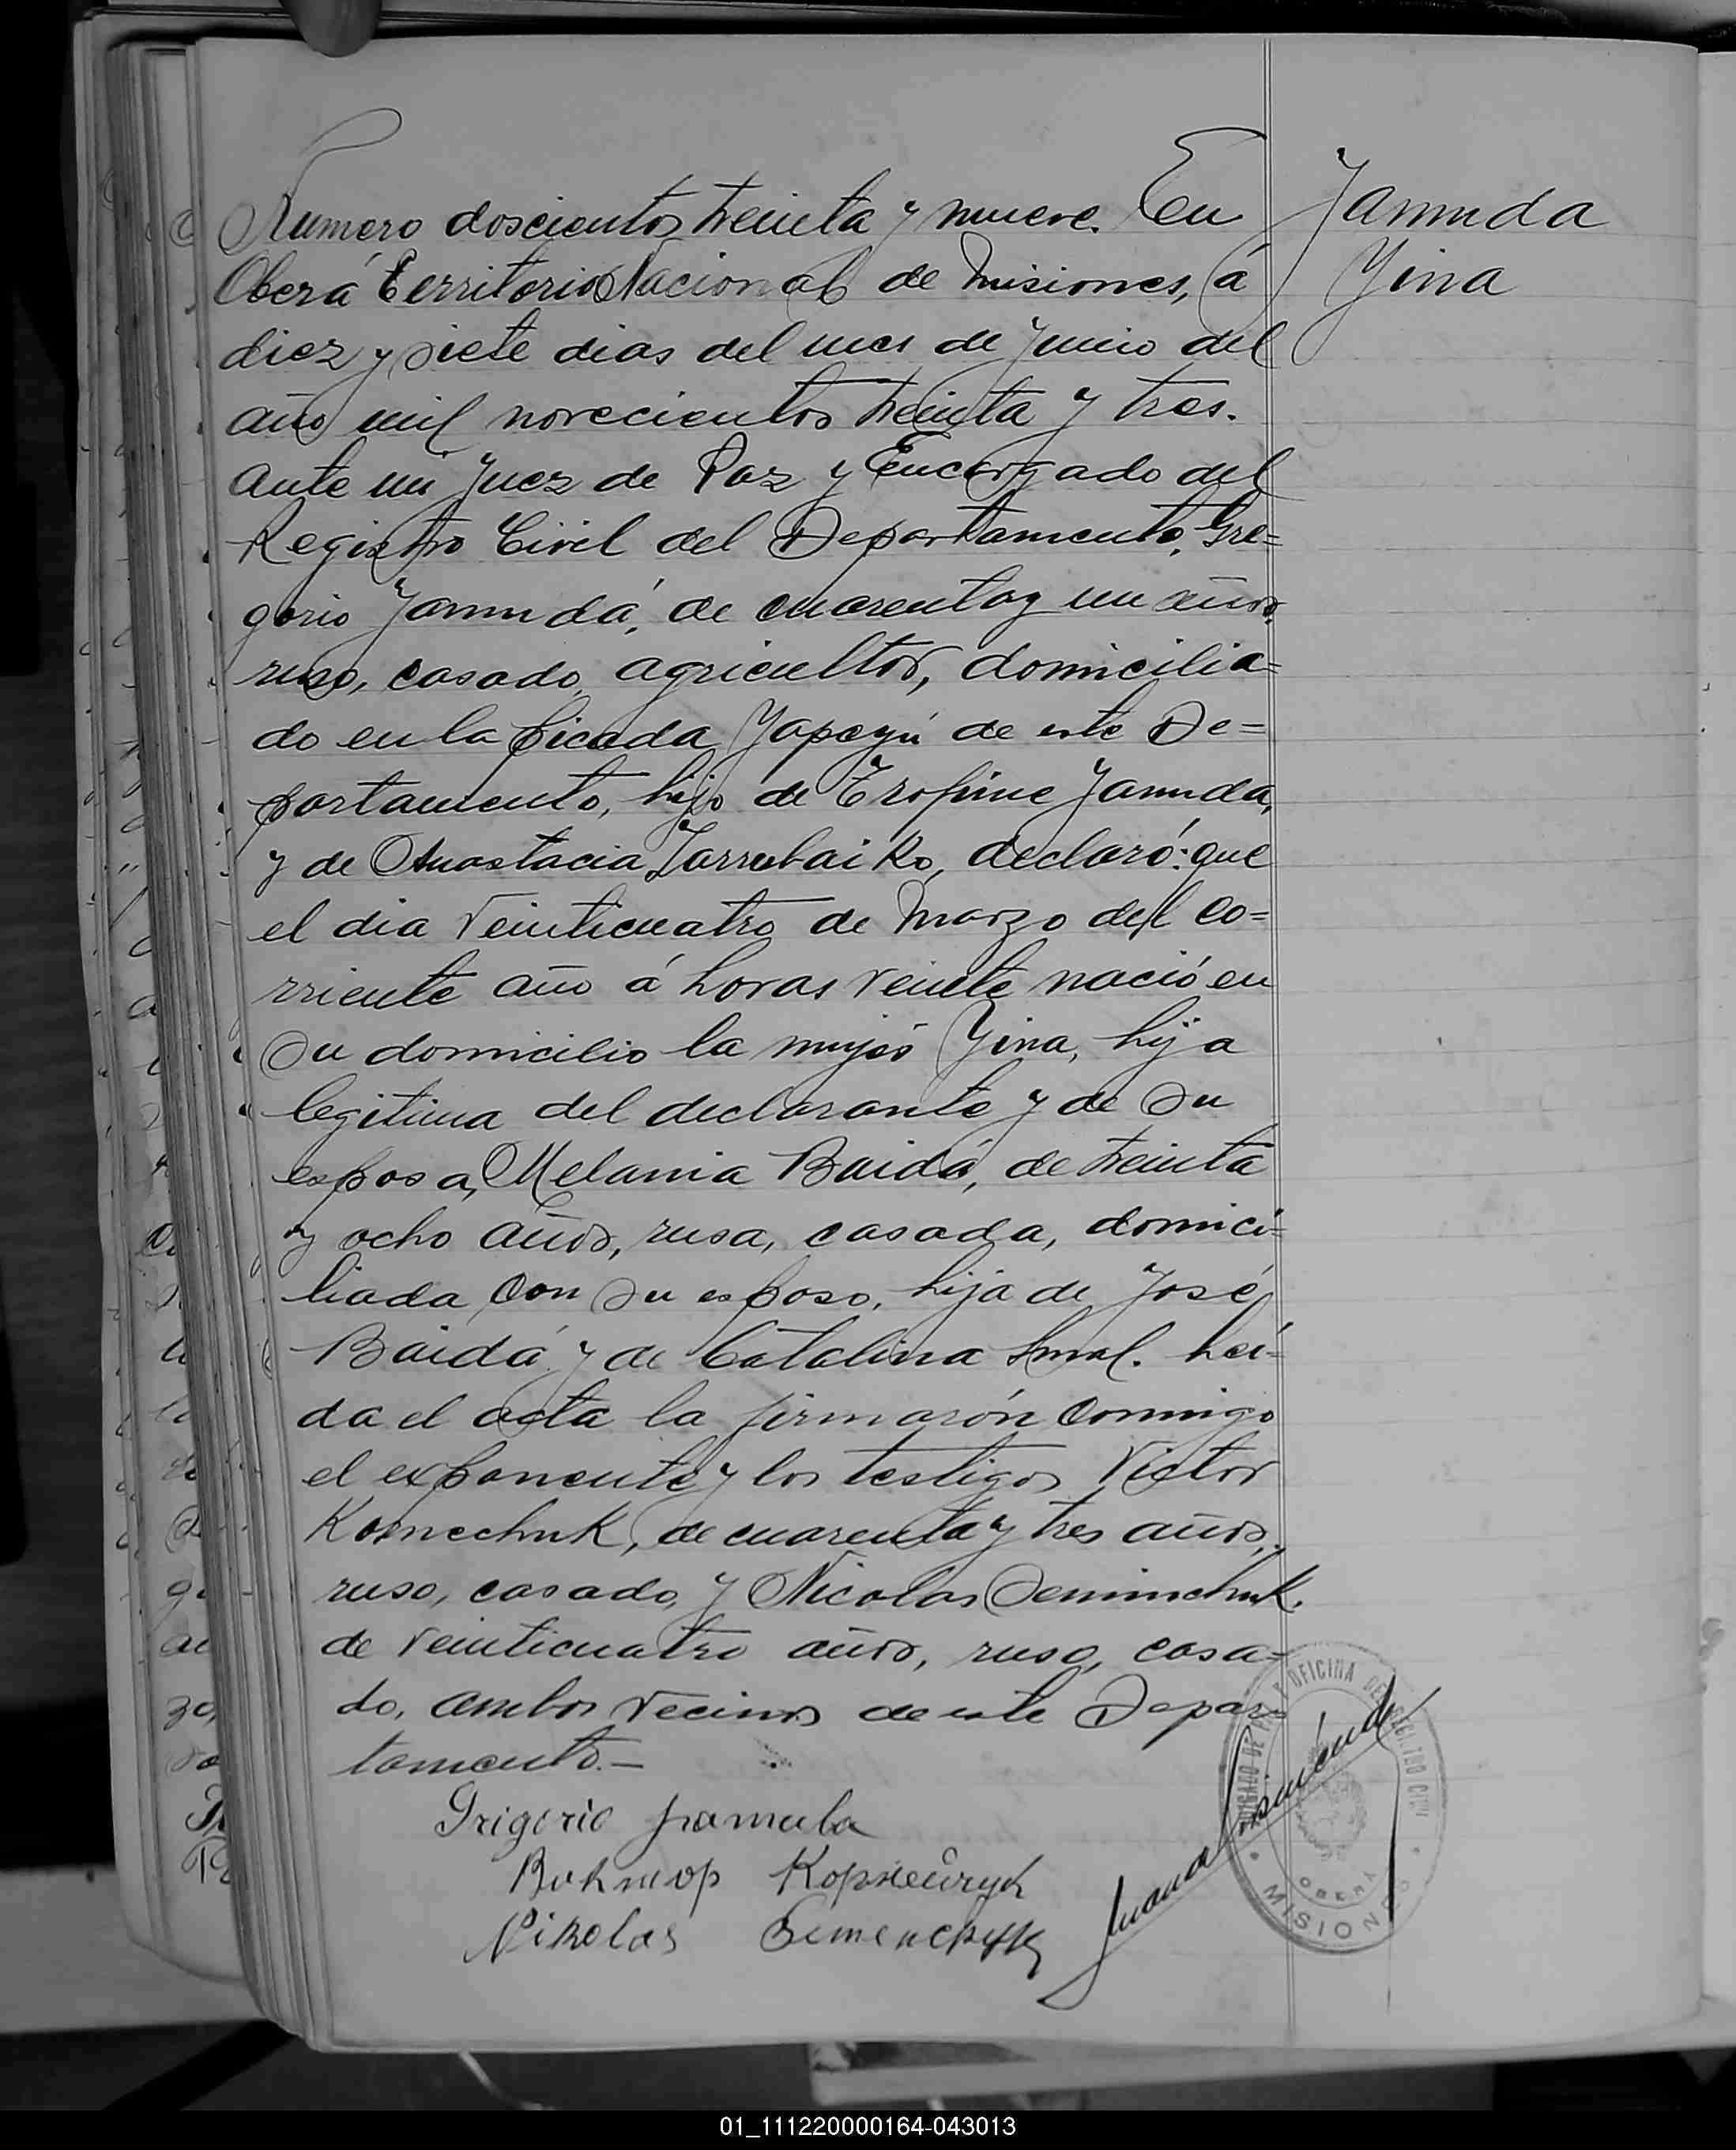 Numero doscientos treinta y nueve. En
Oberá Territorio Nacional de Misiones, á
diez y siete dias del mes de Junio del
año mil novecientos treinta y tres.
Ante mi Juez de Paz y Encargado del
Registro Civil del Departamento, Gre=
gorio Jamudá, de cuarenta y un años,
ruso, casado, agricultor, domicilia=
do en la Picada Yapeyú de este De=
partamento, hijo de Trofime Jamuda,
y de Anastacia Jarrubaiko, declaró: que
el dia veinticuatro de Marzo del co=
rriente año á horas veinte nació en
su domicilio la mujer Yina, hija
legitima del declarante y de su
esposa, Melania Baidá, de treinta
y ocho años, rusa, casada, domici=
liada con su esposo, hija de José
Baidá y de Catalina Smal. Lei=
da el acta la firmarón conmigo
el exponente y los testigos Victor
Kornechuk, de cuarenta y tres años,
ruso, casado, y Nicolas Seminchuk.
de veinticuatro años, ruso, casa=
do, ambos vecinos de este Depar=
tamento.—
Jamuda
Yina
Grigorio
Виктор Корнейчук
Nikolas
Juana
OFICINA DEL REGISTRO CIVIL
OBERÁ
MISIONES
01_111220000164-043013